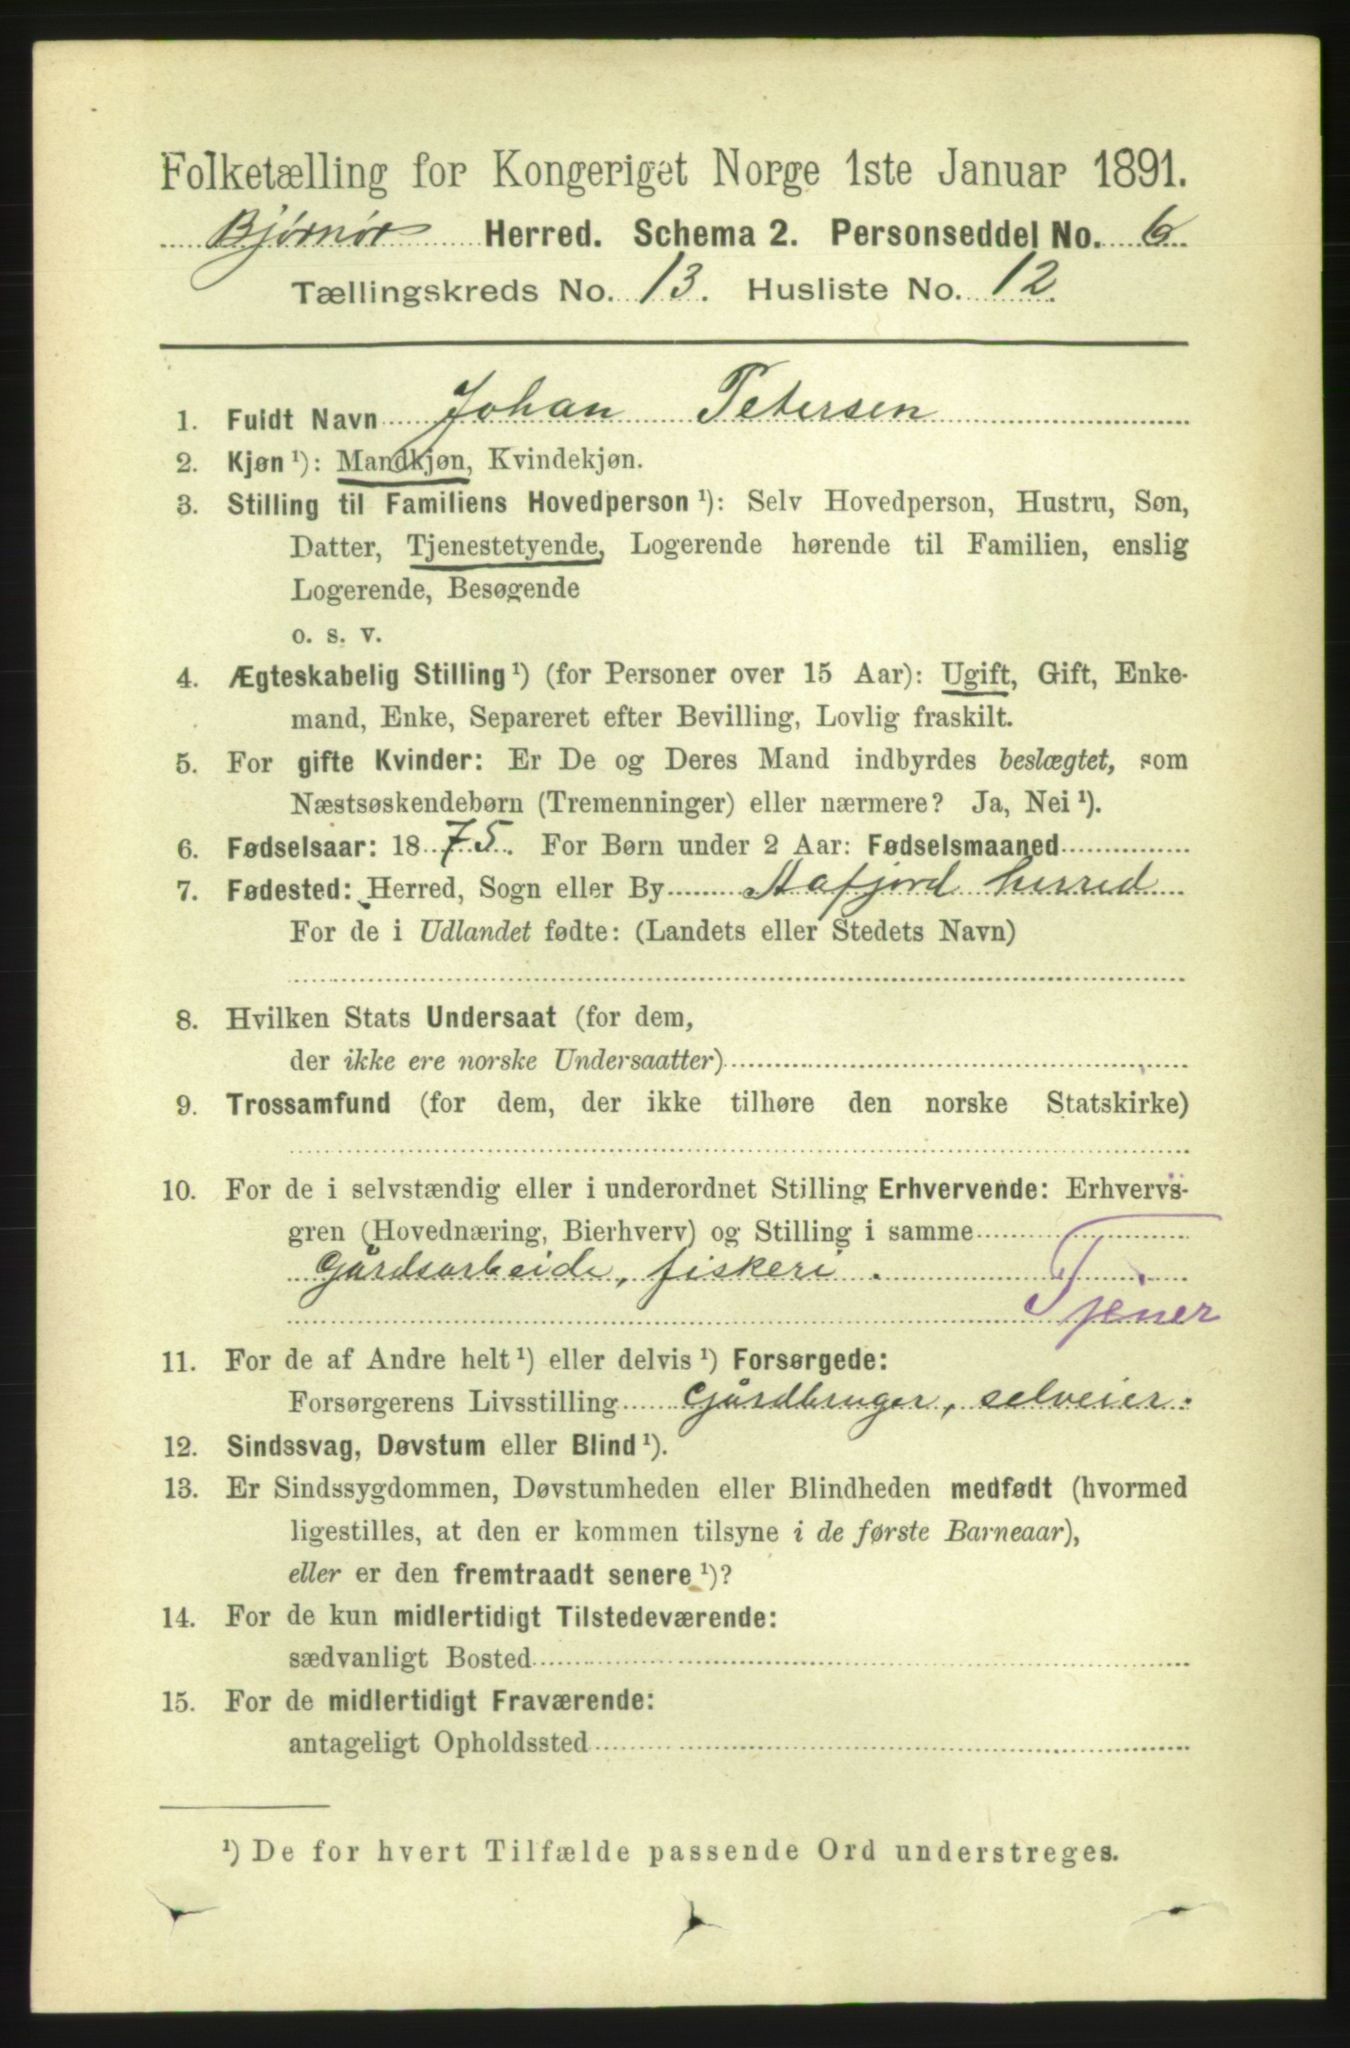 Folketælling for Kongeriget Norge 1ste Januar 1891.
Bjørnør Herred. Schema 2. Personseddel No. 6
Tællingskreds No. 13. Husliste No. 12.
1. Fuldt Navn Johan Petersen
2. Kjøn ¹): Mandkjøn, Kvindekjøn.
3. Stilling til Familiens Hovedperson ¹): Selv Hovedperson, Hustru, Søn,
Datter, Tjenestetyende, Logerende hørende til Familien, enslig
Logerende, Besøgende
o. s. v.
4. Ægteskabelig Stilling ¹) (for Personer over 15 Aar): Ugift, Gift, Enke-
mand, Enke, Separeret efter Bevilling, Lovlig fraskilt.
5. For gifte Kvinder: Er De og Deres Mand indbyrdes beslægtet, som
Næstsøskendebørn (Tremenninger) eller nærmere? Ja, Nei ¹).
6. Fødselsaar: 1875. For Børn under 2 Aar: Fødselsmaaned
7. Fødested: Herred, Sogn eller By Aafjord herred
For de i Udlandet fødte: (Landets eller Stedets Navn)
8. Hvilken Stats Undersaat (for dem,
der ikke ere norske Undersaatter)
9. Trossamfund (for dem, der ikke tilhøre den norske Statskirke)
10. For de i selvstændig eller i underordnet Stilling Erhvervende: Erhvervs-
gren (Hovednæring, Bierhverv) og Stilling i samme
Gårdsarbeide, fiskeri.
Tjener
11. For de af Andre helt ¹) eller delvis ¹) Forsørgede:
Forsørgerens Livsstilling Gårdbruger, selveier.
12. Sindssvag, Døvstum eller Blind ¹).
13. Er Sindssygdommen, Døvstumheden eller Blindheden medfødt (hvormed
ligestilles, at den er kommen tilsyne i de første Barneaar),
eller er den fremtraadt senere ¹)?
14. For de kun midlertidigt Tilstedeværende:
sædvanligt Bosted
15. For de midlertidigt Fraværende:
antageligt Opholdssted
¹) De for hvert Tilfælde passende Ord understreges.